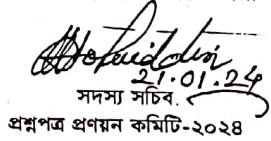 21.01.24
সদস্য সচিব.
প্রশ্নপত্র প্রণয়ন কমিটি-২০২৪